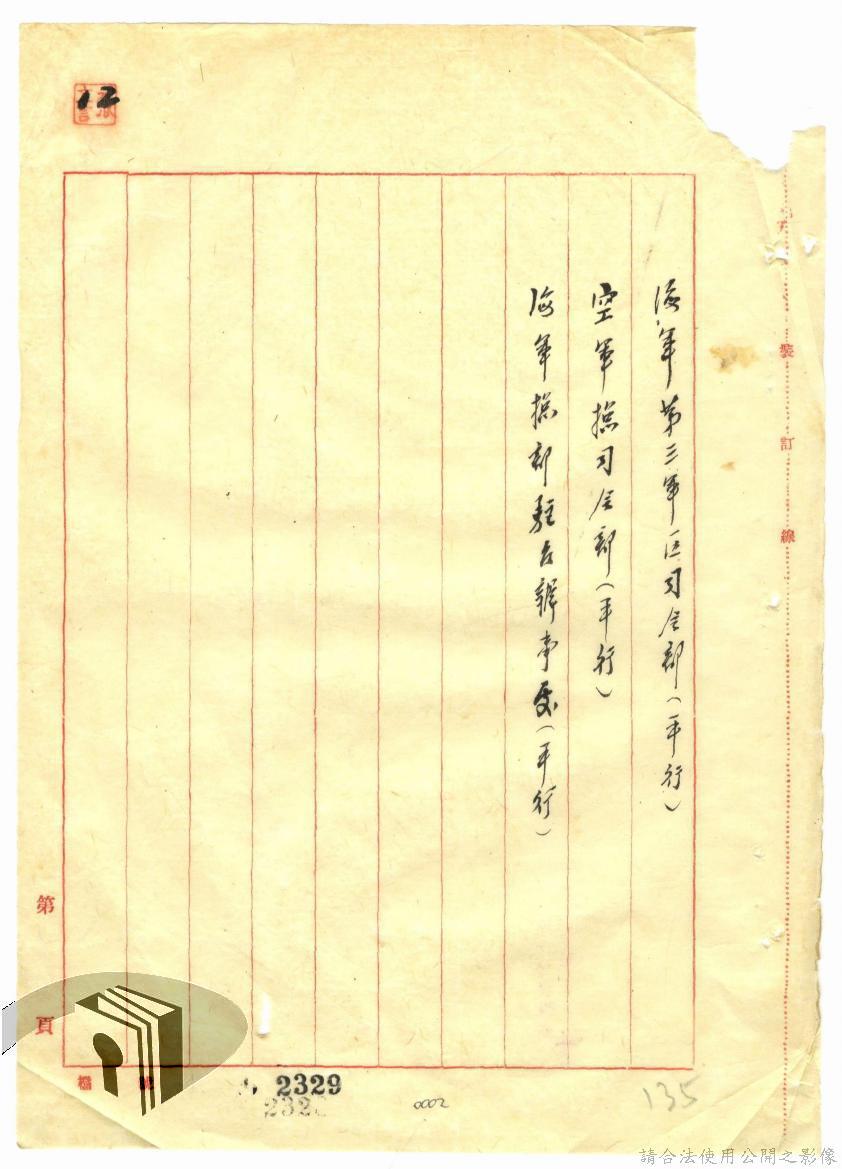 12
海軍第三軍区司令部（平行）
空軍總司令部（平行）
海軍總部駐台辦事处（平行）
裝
訂
線
第
頁
2329
0002
135
請合法使用公開之影像